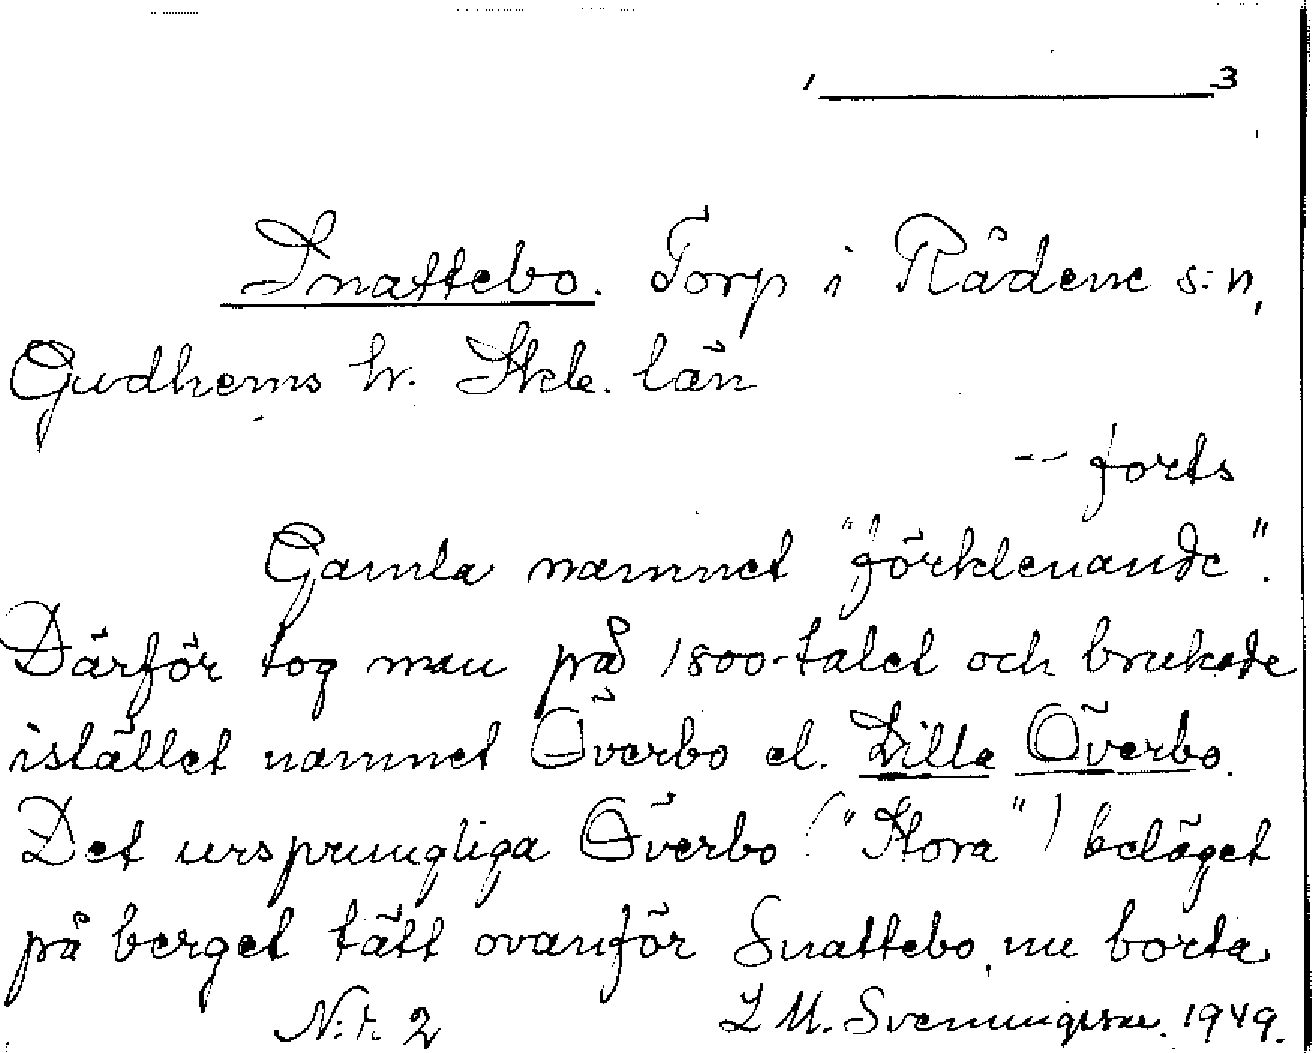 1 3
Snattebo. Torp i Rådene s:n,
Gudhems hr. Skb. län
-- forts
Gamla namnet "förklenande".
Därför tog man på 1800-talet och brukade
istället namnet Överbo el. Lilla Överbo.
Det ursprungliga Överbo ("Stora") beläget
på berget tätt ovanför Snattebo, nu borta
N:r 2 L M. Svenungsson. 1949.